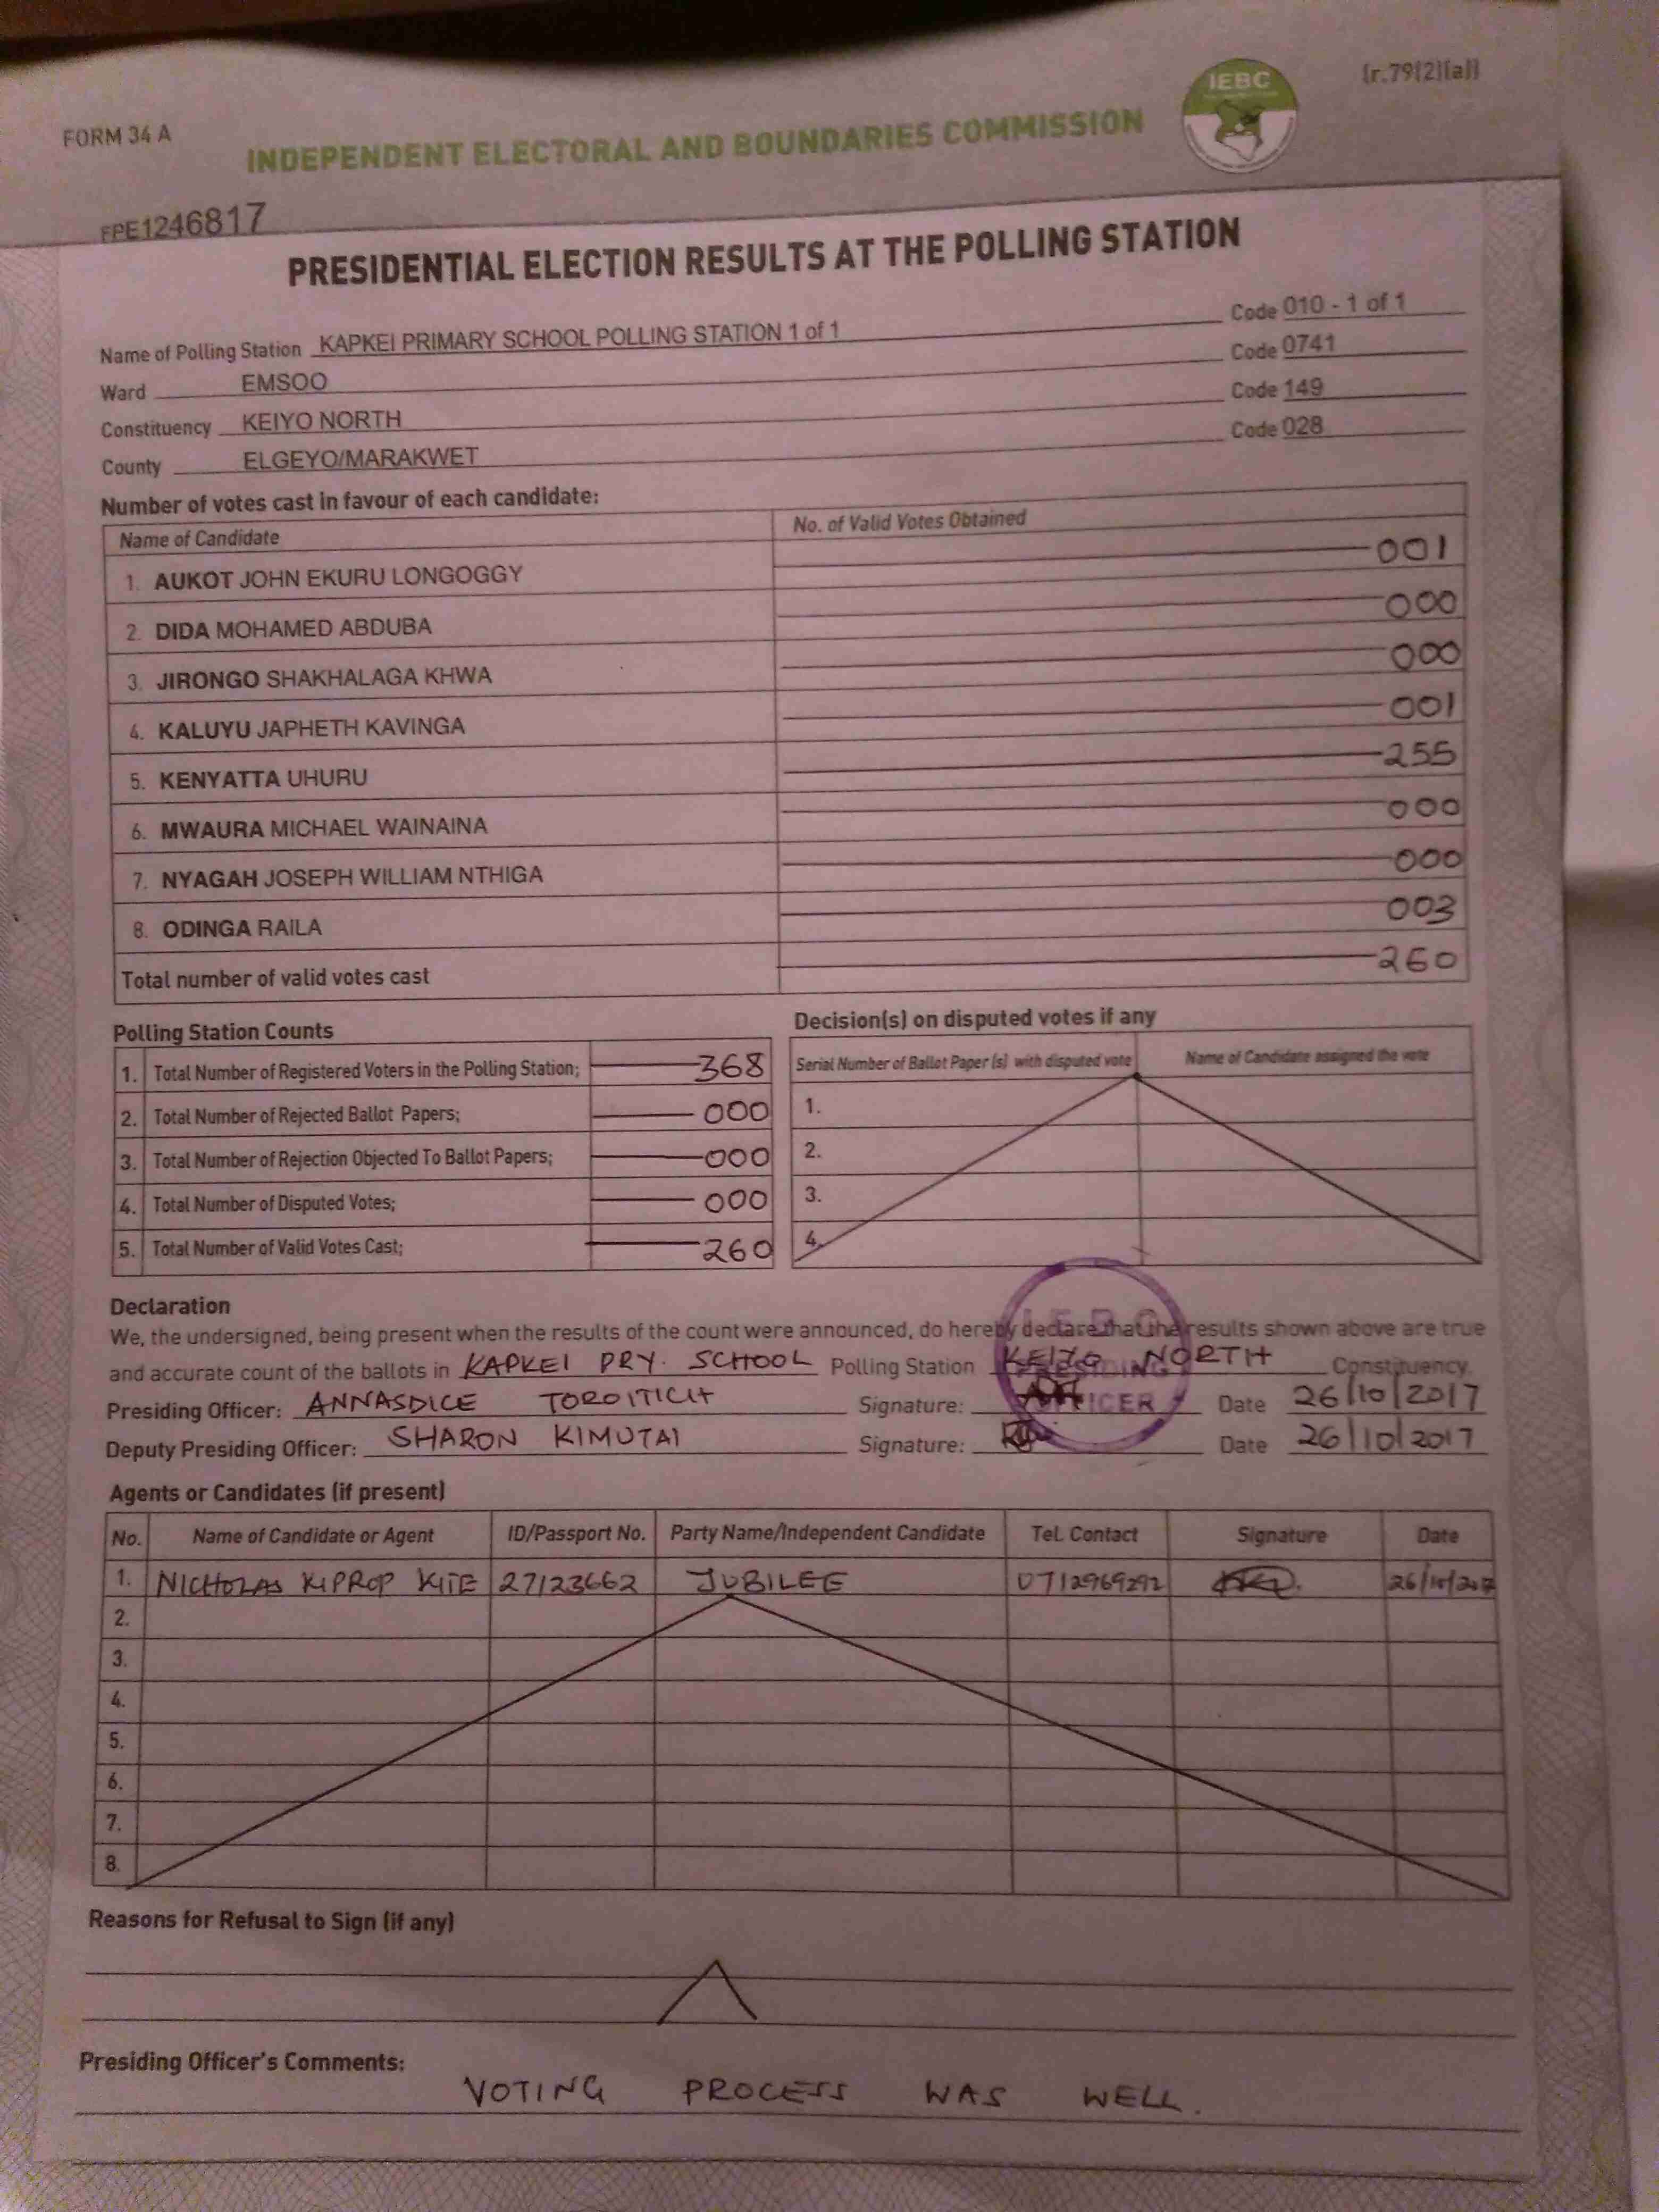 IEBC
(r.79(2)(a))
FORM 34 A
INDEPENDENT ELECTORAL AND BOUNDARIES COMMISSION
FPE1246817
PRESIDENTIAL ELECTION RESULTS AT THE POLLING STATION
Name of Polling Station KAPKEI PRIMARY SCHOOL POLLING STATION 1 of 1 Code 010 - 1 of 1
Ward EMSOO Code 0741
Constituency KEIYO NORTH Code 149
County ELGEYO/MARAKWET Code 028
Number of votes cast in favour of each candidate:
Name of Candidate No. of Valid Votes Obtained
1. AUKOT JOHN EKURU LONGOGGY 001
2. DIDA MOHAMED ABDUBA 000
3. JIRONGO SHAKHALAGA KHWA 000
4. KALUYU JAPHETH KAVINGA 001
5. KENYATTA UHURU 255
6. MWAURA MICHAEL WAINAINA 000
7. NYAGAH JOSEPH WILLIAM NTHIGA 000
8. ODINGA RAILA 003
Total number of valid votes cast 260
Polling Station Counts
1. Total Number of Registered Voters in the Polling Station; 368
2. Total Number of Rejected Ballot Papers; 000
3. Total Number of Rejection Objected To Ballot Papers; 000
4. Total Number of Disputed Votes; 000
5. Total Number of Valid Votes Cast; 260
Decision(s) on disputed votes if any
Serial Number of Ballot Paper (s) with disputed vote Name of Candidate assigned the vote
1.
2.
3.
4.
Declaration
We, the undersigned, being present when the results of the count were announced, do hereby declare that the results shown above are true
and accurate count of the ballots in KAPKEI PRY. SCHOOL Polling Station KEIYO NORTH Constituency.
Presiding Officer: ANNASDICE TOROITICH Signature: Date 26/10/2017
Deputy Presiding Officer: SHARON KIMUTAI Signature: Date 26/10/2017
I.E.B.C
PRESIDING
OFFICER
Agents or Candidates (if present)
No. Name of Candidate or Agent ID/Passport No. Party Name/Independent Candidate Tel. Contact Signature Date
1. NICHOLAS KIPROP KITE 27123662 JUBILEE 0712969292 26/10/2017
2.
3.
4.
5.
6.
7.
8.
Reasons for Refusal to Sign (if any)
Presiding Officer's Comments:
VOTING PROCESS WAS WELL.